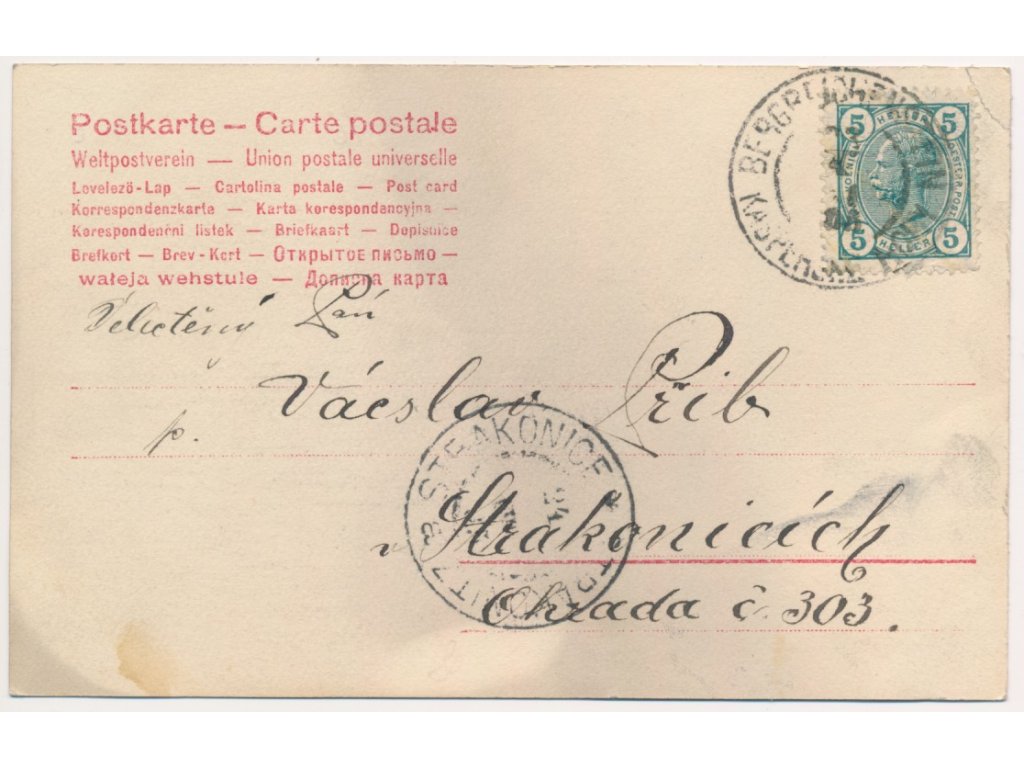 Postkarte – Carte postale
Weltpostverein — Union postale universelle
Levelező-Lap — Cartolina postale — Post card
Korrespondenzkarte — Karta korespondencyjna —
Korespondenční listek — Briefkaart — Dopisnice
Brefkort — Brev-Kort — Открытое письмо —
wałeja wehstule — Дописна карта
BERGREICHENSTEIN
KAŠPERSKÉ
5 HELLER 5
5 HELLER 5
Pán
Václav Přib
p.
STRAKONICE
v Strakonicích
STRAKONITZ
Ohrada č. 303.